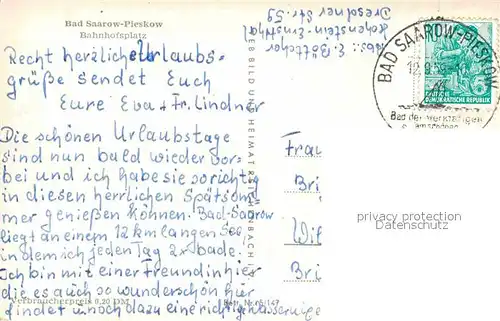 Bad Saarow-Pieskow
Bahnhofsplatz
Recht herzliche Urlaubs-
grüße sendet Euch
Eure Eva + Fr. Lindner
Die schönen Urlaubstage
sind nun bald wieder vor-
bei und ich habe sie so richtig
in diesen herrlichen Spätsom
mer genießen können. Bad-Saarow
liegt an einem 12 km langen See
in dem ich jeden Tag 2x bade.
Ich bin mit einer Freundin hier
die es auch so wunderschön hier
findet und noch dazu eine richtige
Verbraucherpreis 0,20 DM
Abs.: E. Böttcher
Hohenstein-Ernstthal
Dresdner Str. 59
BILD UND HEIMAT REICHENBACH
BAD SAAROW-PIESKOW
12.9.58
Bad der Werktätigen
DEUTSCHE
DEMOKRATISCHE REPUBLIK
Frau
Bri
Wil
Bri
privacy protection
Datenschutz